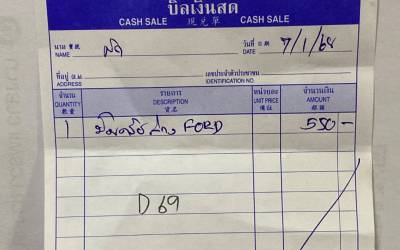 บิลเงินสด
CASH SALE 現兑單 CASH SALE
นาม 寶號 วันที่ 日期 7/1/68
NAME DATE
ที่อยู่ 住址 เลขประจำตัวประชาชน
ADDRESS IDENTIFICATION NO.
จำนวน รายการ หน่วยละ จำนวนเงิน
QUANTITY DESCRIPTION UNIT PRICE AMOUNT
數量 貨名 價銀 銀額
1 FORD 550-
D 69